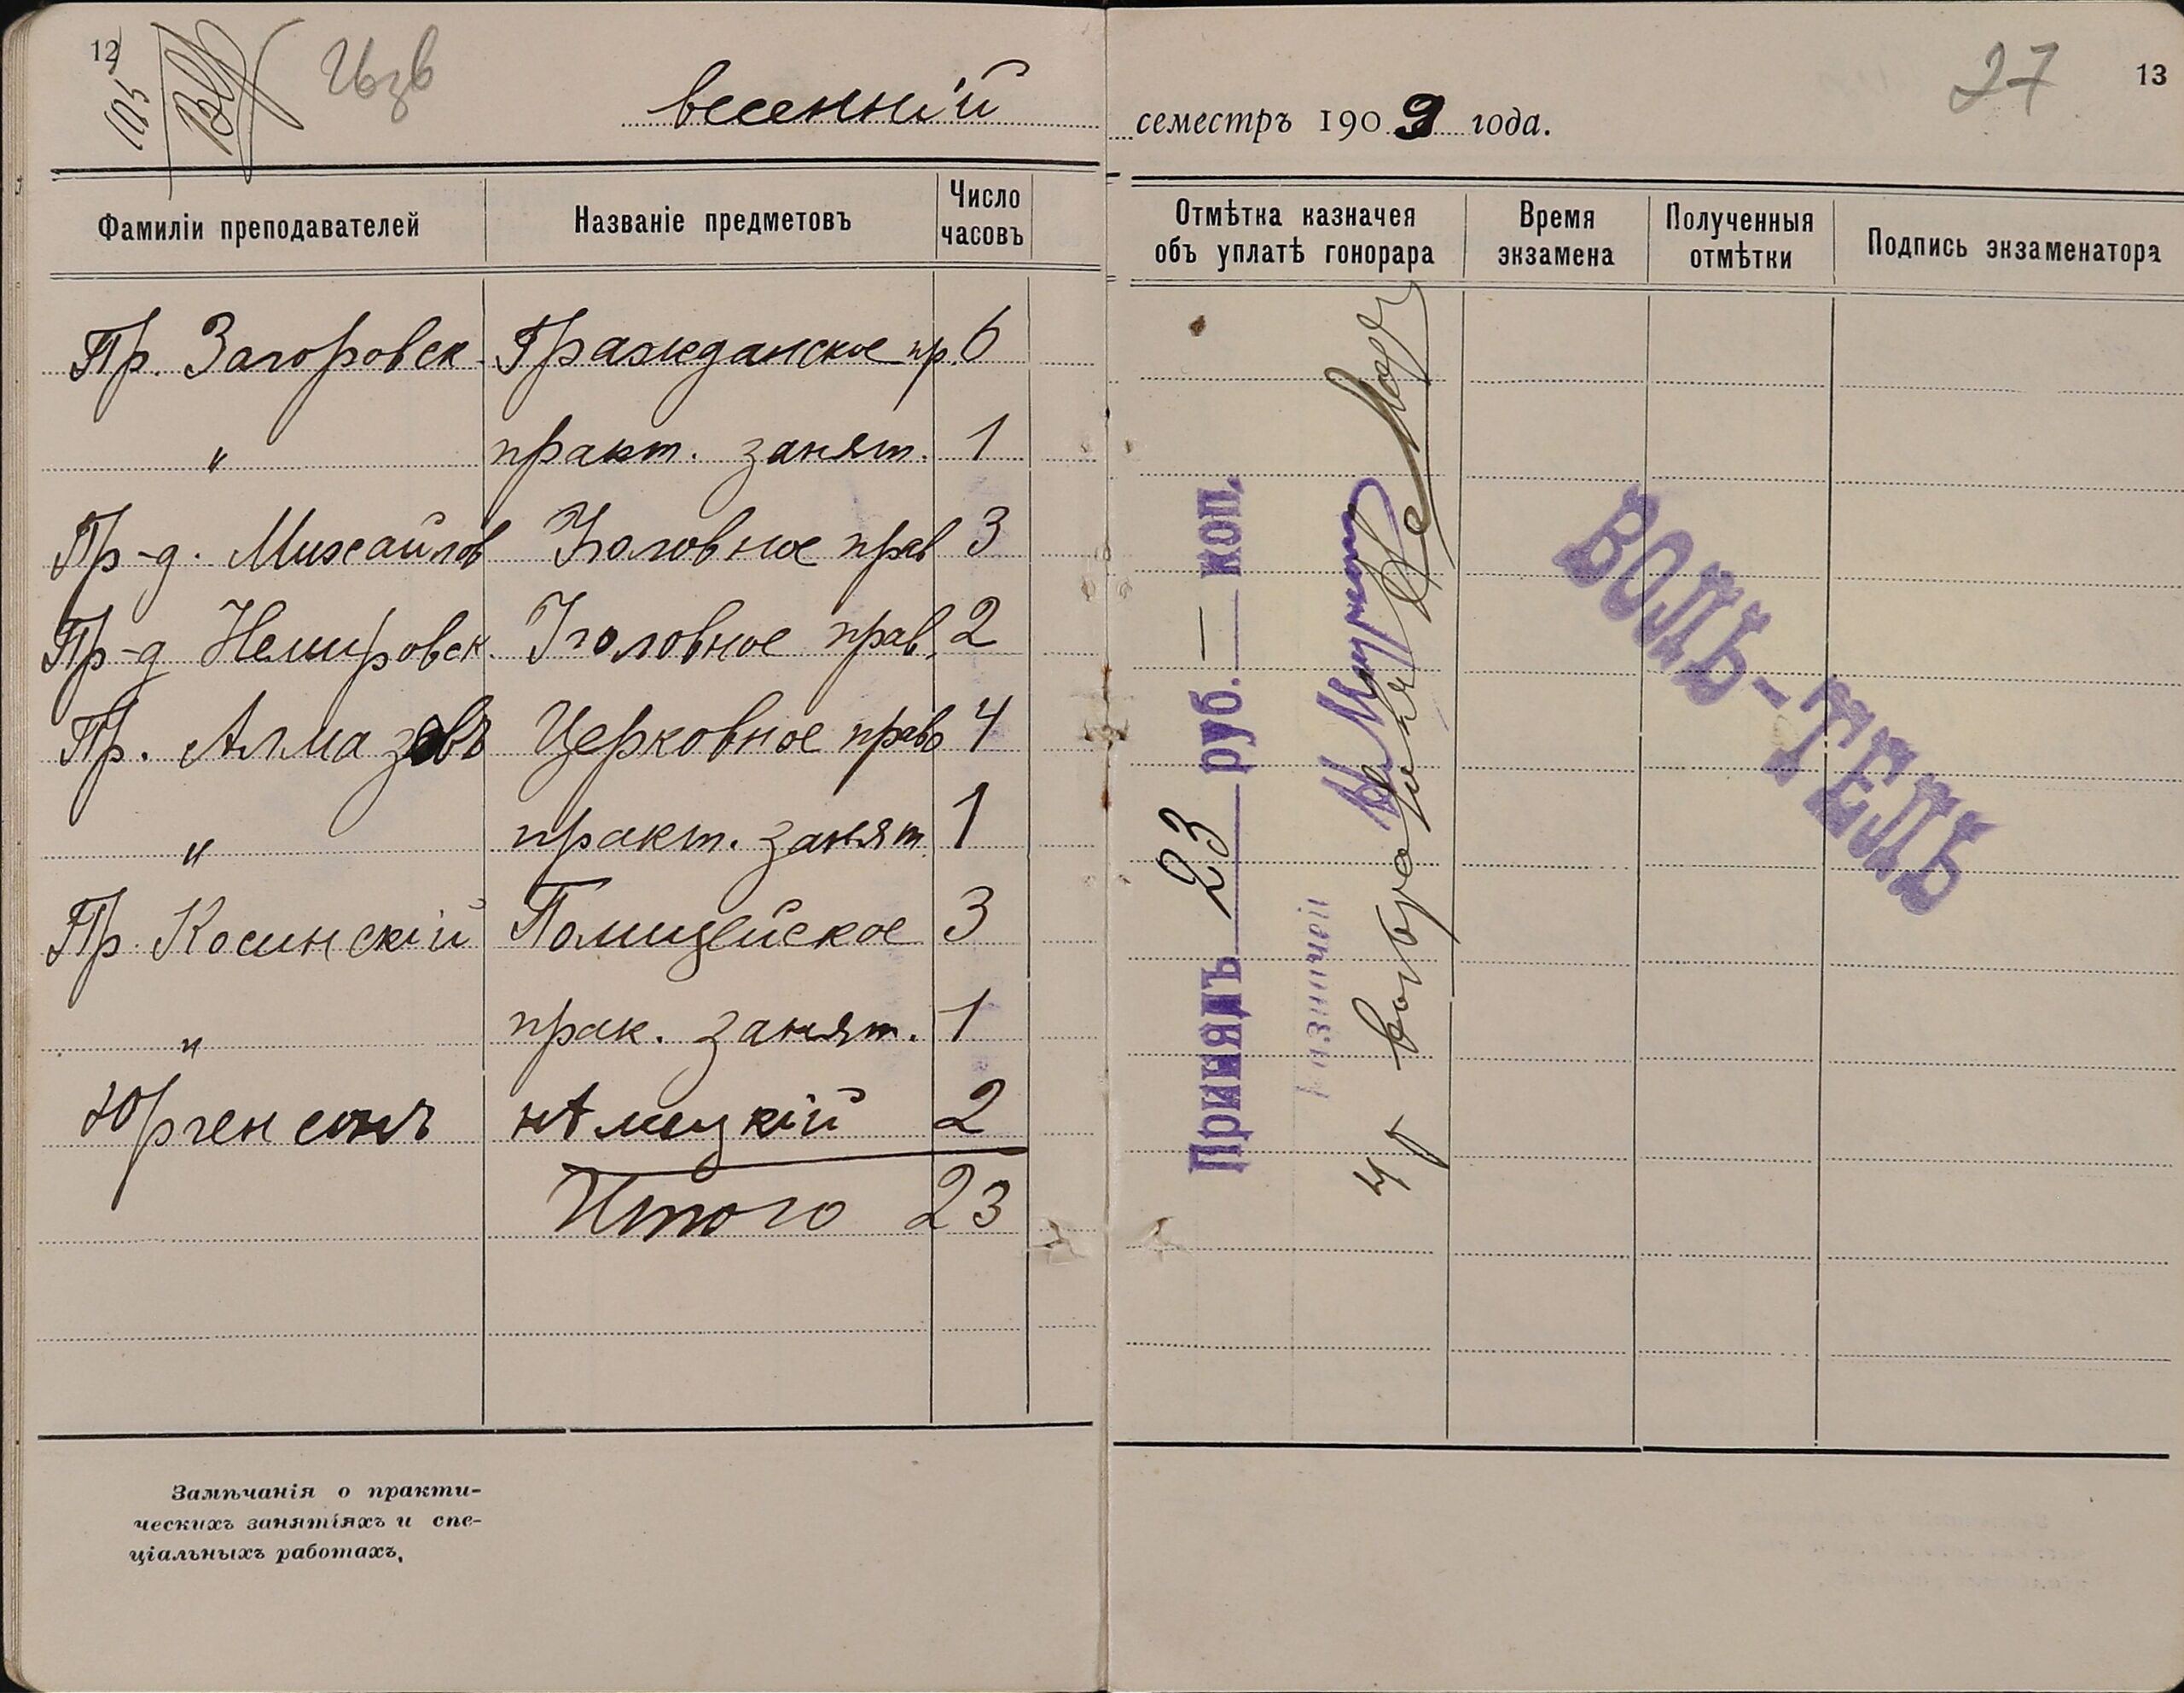 12
весенній
Фамиліи преподавателей Названіе предметовъ Число часовъ
Пр. Загоровск. Гражданское пр. 6
" практ. занят. 1
Пр-д. Михайлов Уголовное прав 3
Пр-д Немировск. Уголовное прав. 2
Пр. Алмазовъ Церковное право 4
" практ. занят. 1
Пр. Косинскій Полицейское 3
" прак. занят. 1
Юргенсонъ нѣмецкій 2
Итого 23
Замѣчанія о практи-
ческихъ занятіяхъ и спе-
ціальныхъ работахъ.
27
13
семестръ 1909 года.
Отмѣтка казначея объ уплатѣ гонорара Время экзамена Полученныя отмѣтки Подпись экзаменатора
Принялъ 23 руб. — коп.
Казначей
ВОЛЬ-ТЕЛЬ